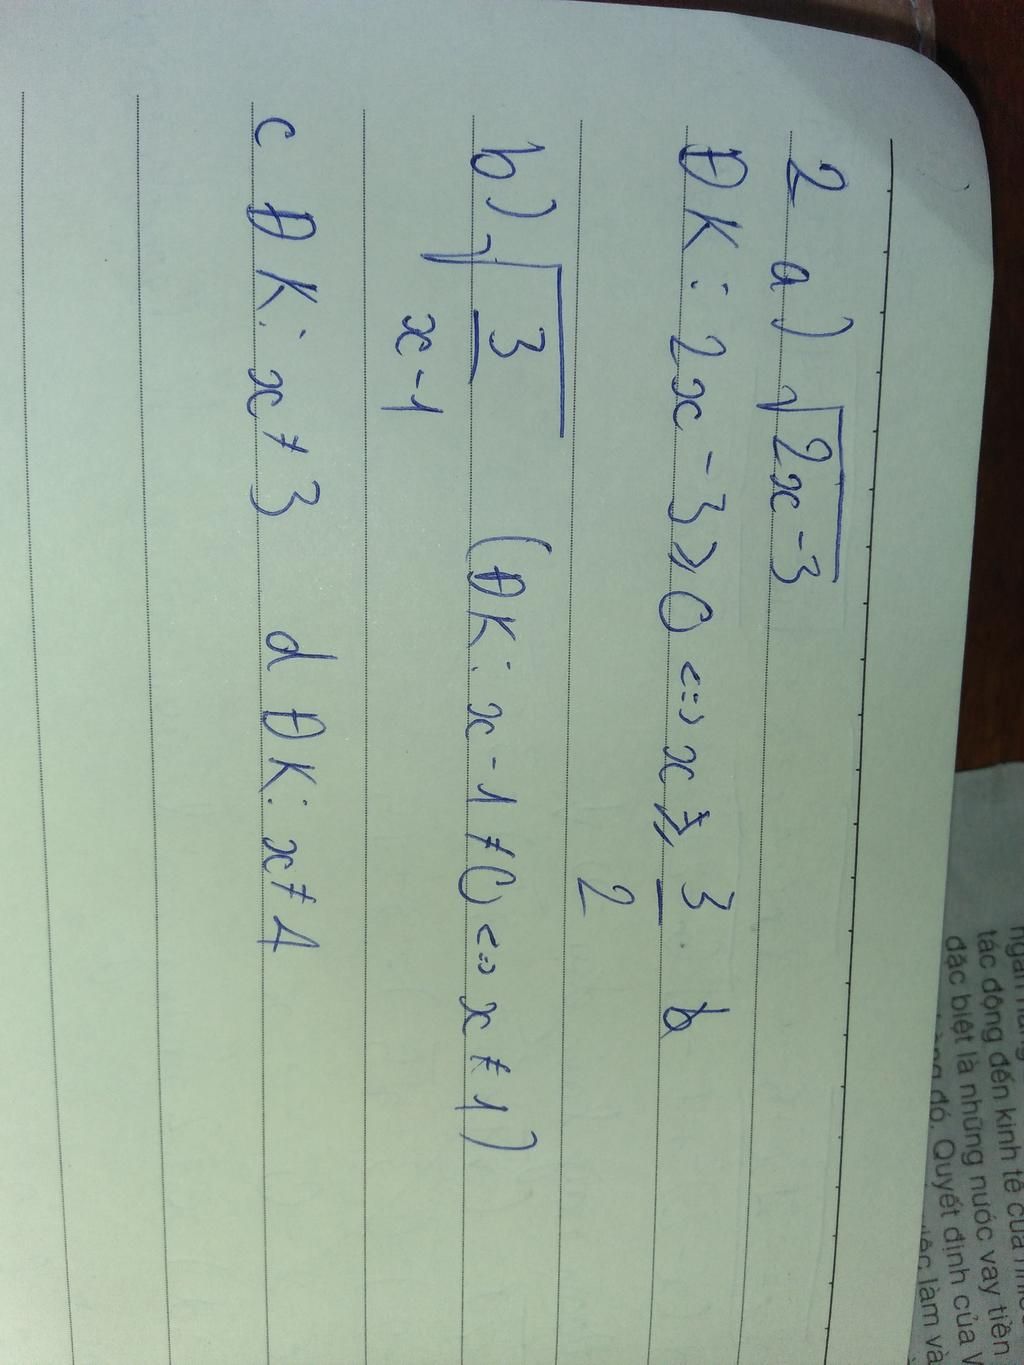 2 a) √2x-3
ĐK: 2x-3⩾0 <=> x ⩾ 3/2
b) √3/x-1 (ĐK: x-1≠0 <=> x≠1)
c ĐK: x≠3 d ĐK: x≠1
tác động đến kinh tế của
đặc biệt là những nước vay tiền
đó. Quyết định của
làm và